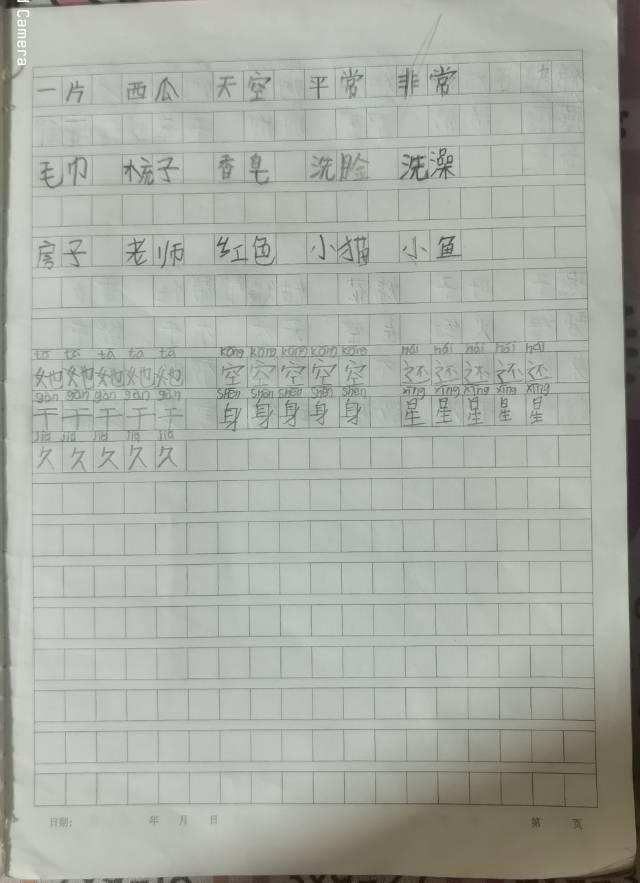 Camera
一片 西瓜 天空 平常 非常
毛巾 梳子 香皂 洗脸 洗澡
房子 老师 红色 小猫 小鱼
tā tā tā tā tā kōng kōng kōng kōng kōng hái hái hái hái hái
她 她 她 她 她 空 空 空 空 空 还 还 还 还 还
gàn gàn gàn gàn gàn shēn shēn shēn shēn shēn xīng xīng xīng xīng xīng
干 干 干 干 干 身 身 身 身 身 星 星 星 星 星
jiǔ jiǔ jiǔ jiǔ jiǔ
久 久 久 久 久
日期: 年 月 日 第 页